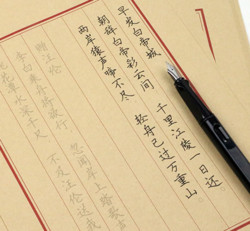 早发白帝城
朝辞白帝彩云间
千里江陵一日还。
两岸猿声啼不尽
轻舟已过万重山
赠汪伦
李白乘舟将欲行
忽闻岸上踏歌声
花潭水深千尺
不及汪伦送我情